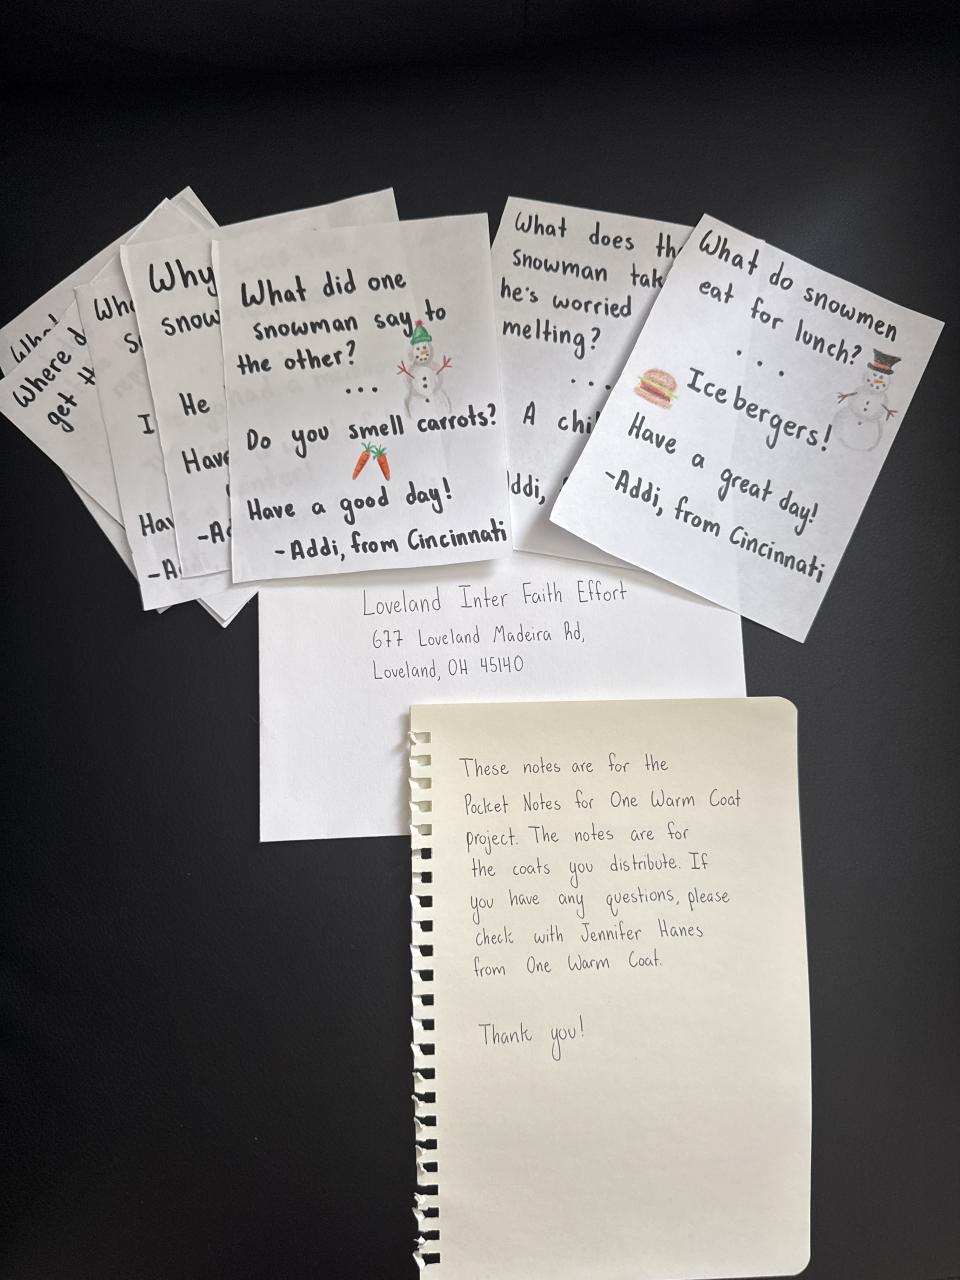 What
Where d
get th
Wha
I
Hav
Why
snow
He
Have
What did one
snowman say to
the other?
...
Do you smell carrots?
Have a good day!
-Addi, from Cincinnati
What does th
snowman tak
he's worried
melting?
...
A chi
Addi,
What do snowmen
eat for lunch?
...
Ice bergers!
Have a great day!
-Addi, from Cincinnati
Loveland Inter Faith Effort
677 Loveland Madeira Rd,
Loveland, OH 45140
These notes are for the
Pocket Notes for One Warm Coat
project. The notes are for
the coats you distribute. If
you have any questions, please
check with Jennifer Hanes
from One Warm Coat.
Thank you!